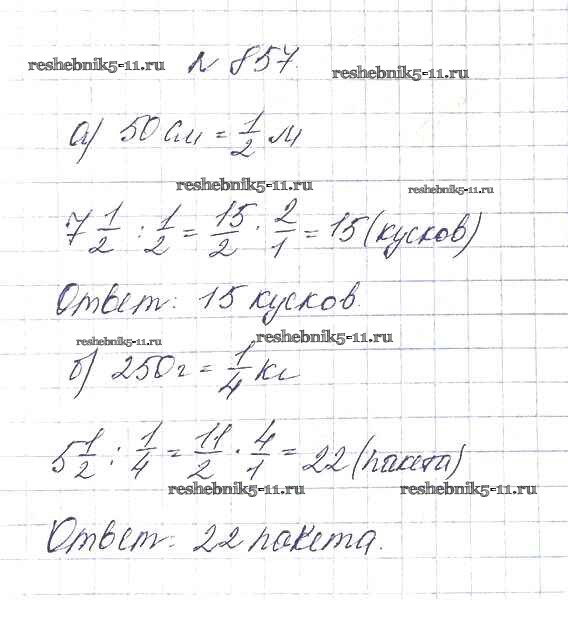 reshebnik5-11.ru № 857. reshebnik5-11.ru
а) 50 см = 1/2 м
reshebnik5-11.ru reshebnik5-11.ru
7 1/2 : 1/2 = 15/2 · 2/1 = 15 (кусков)
Ответ: 15 кусков.
reshebnik5-11.ru reshebnik5-11.ru
б) 250 г = 1/4 кг
5 1/2 : 1/4 = 11/2 · 4/1 = 22 (пакета)
reshebnik5-11.ru reshebnik5-11.ru
Ответ: 22 пакета.